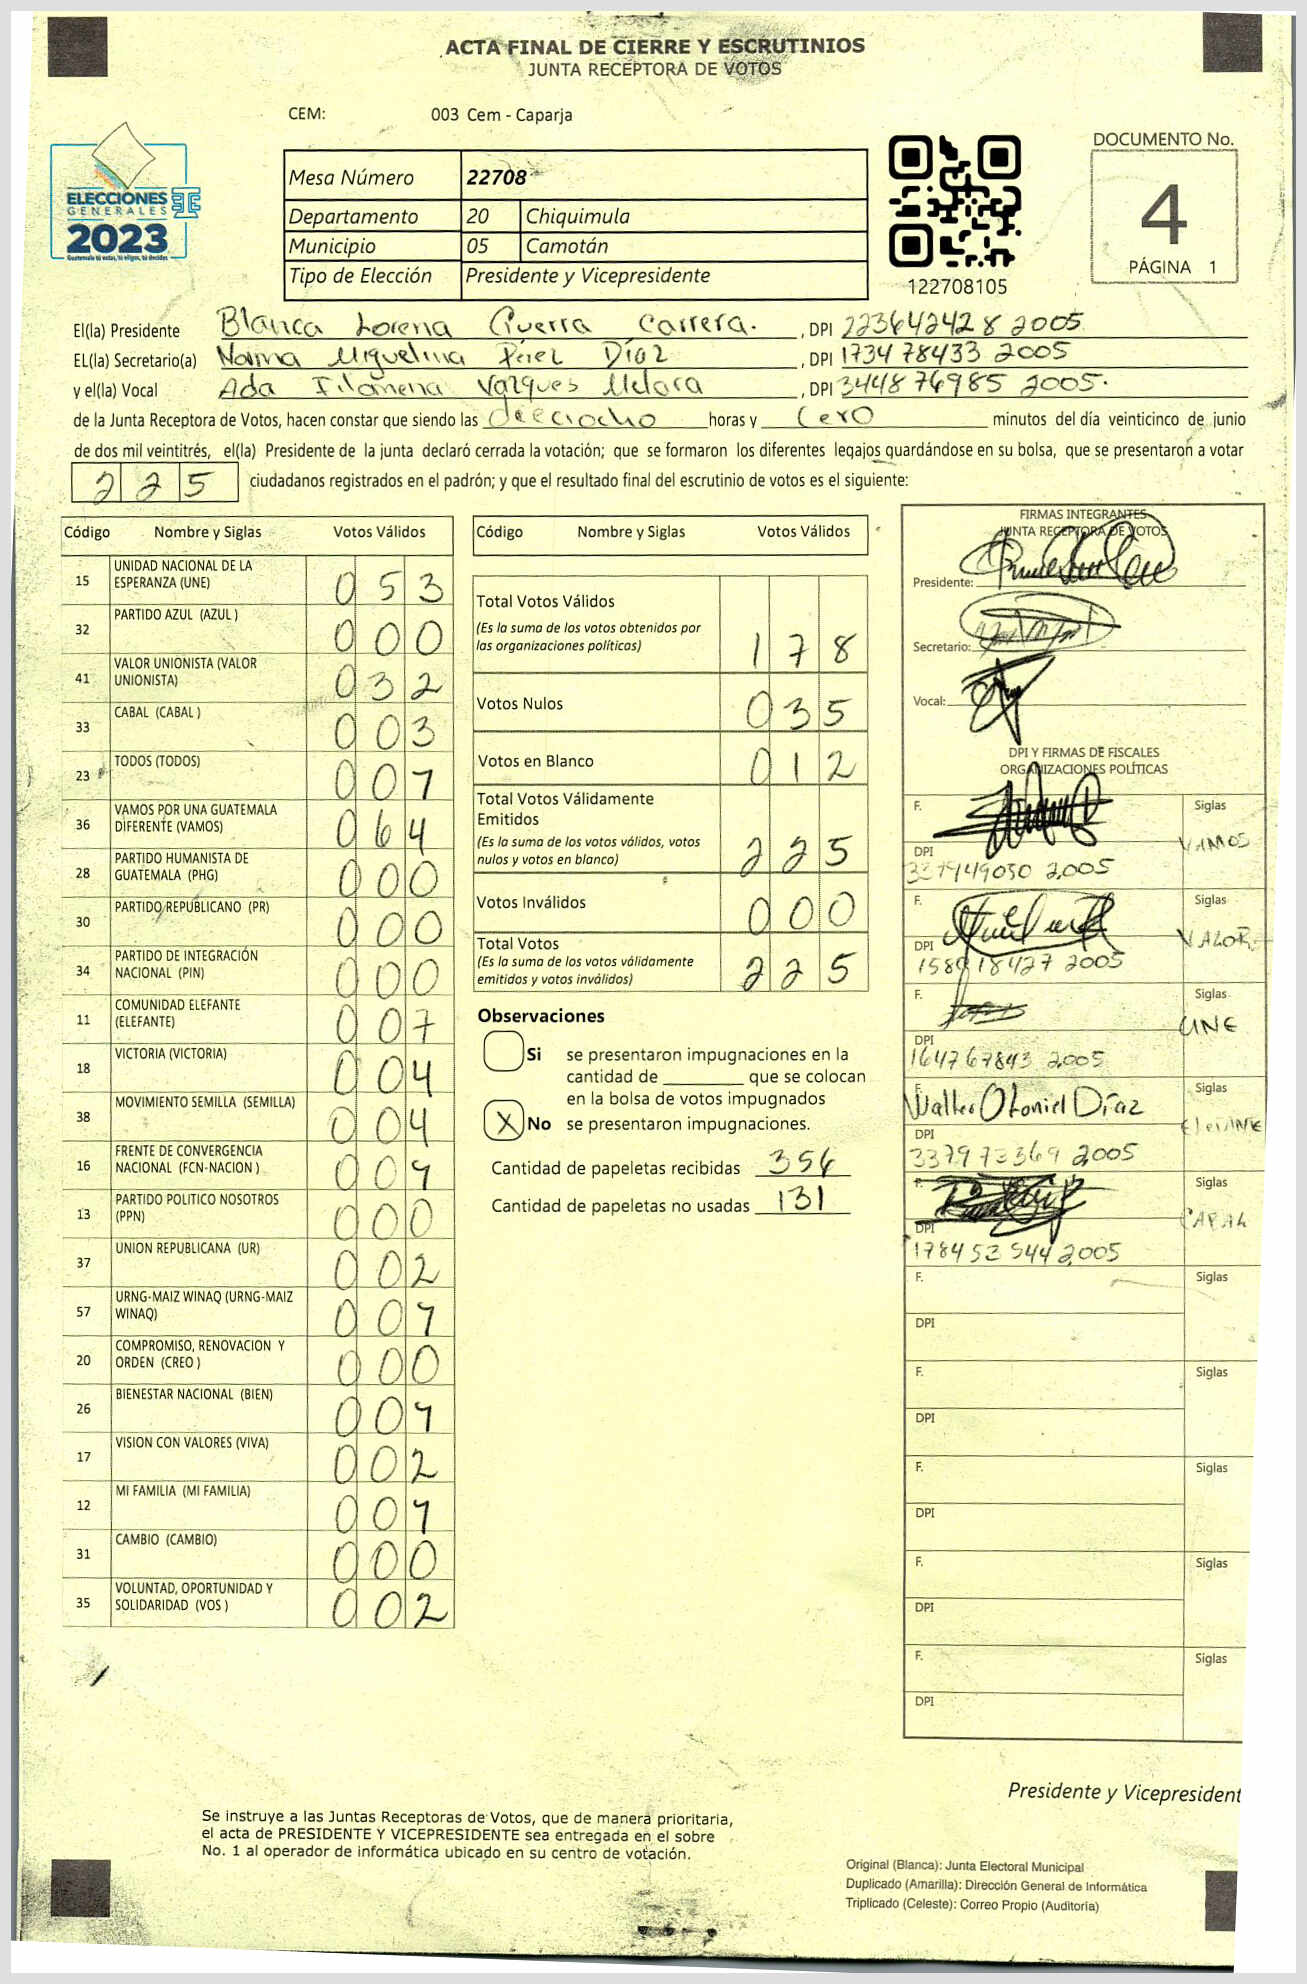 ACTA FINAL DE CIERRE Y ESCRUTINIOS
JUNTA RECEPTORA DE VOTOS
CEM: 003 Cem - Caparja
DOCUMENTO No.
4
PÁGINA 1
ELECCIONES
GENERALES
2023
Guatemala tú estas, tú eliges, tú decides
Mesa Número 22708
Departamento 20 Chiquimula
Municipio 05 Camotán
Tipo de Elección Presidente y Vicepresidente
122708105
El(la) Presidente Blanca Lorena Guerra Carrera. , DPI 223642428 2005
EL(la) Secretario(a) Norma Miguelina Pérez Díaz , DPI 173478433 2005
y el(la) Vocal Ada Filomena Vazques Melara , DPI 344876985 2005.
de la Junta Receptora de Votos, hacen constar que siendo las dieciocho horas y Cero minutos del día veinticinco de junio
de dos mil veintitrés, el(la) Presidente de la junta declaró cerrada la votación; que se formaron los diferentes legajos guardándose en su bolsa, que se presentaron a votar
225 ciudadanos registrados en el padrón; y que el resultado final del escrutinio de votos es el siguiente:
Código Nombre y Siglas Votos Válidos
15 UNIDAD NACIONAL DE LA
ESPERANZA (UNE) 053
32 PARTIDO AZUL (AZUL ) 000
41 VALOR UNIONISTA (VALOR
UNIONISTA) 032
33 CABAL (CABAL ) 003
23 TODOS (TODOS) 001
36 VAMOS POR UNA GUATEMALA
DIFERENTE (VAMOS) 064
28 PARTIDO HUMANISTA DE
GUATEMALA (PHG) 000
30 PARTIDO REPUBLICANO (PR) 000
34 PARTIDO DE INTEGRACIÓN
NACIONAL (PIN) 000
11 COMUNIDAD ELEFANTE
(ELEFANTE) 007
18 VICTORIA (VICTORIA) 004
38 MOVIMIENTO SEMILLA (SEMILLA) 004
16 FRENTE DE CONVERGENCIA
NACIONAL (FCN-NACION ) 001
13 PARTIDO POLITICO NOSOTROS
(PPN) 000
37 UNION REPUBLICANA (UR) 002
57 URNG-MAIZ WINAQ (URNG-MAIZ
WINAQ) 001
20 COMPROMISO, RENOVACION Y
ORDEN (CREO ) 000
26 BIENESTAR NACIONAL (BIEN) 001
17 VISION CON VALORES (VIVA) 002
12 MI FAMILIA (MI FAMILIA) 001
31 CAMBIO (CAMBIO) 000
35 VOLUNTAD, OPORTUNIDAD Y
SOLIDARIDAD (VOS ) 002
Código Nombre y Siglas Votos Válidos
Total Votos Válidos
(Es la suma de los votos obtenidos por
las organizaciones políticas) 178
Votos Nulos 035
Votos en Blanco 012
Total Votos Válidamente
Emitidos
(Es la suma de los votos válidos, votos
nulos y votos en blanco) 225
Votos Inválidos 000
Total Votos
(Es la suma de los votos válidamente
emitidos y votos inválidos) 225
Observaciones
Si se presentaron impugnaciones en la
cantidad de ________ que se colocan
en la bolsa de votos impugnados
X No se presentaron impugnaciones.
Cantidad de papeletas recibidas 356
Cantidad de papeletas no usadas 131
FIRMAS INTEGRANTES
JUNTA RECEPTORA DE VOTOS
Presidente:
Secretario:
Vocal:
DPI Y FIRMAS DE FISCALES
ORGANIZACIONES POLÍTICAS
F. Siglas
VAMOS
DPI
337949050 2005
F. Siglas
VALOR
DPI
158918427 2005
F. Siglas
UNE
DPI
164767843 2005
F. Siglas
Walter Otoniel Díaz
DPI
337973369 2005
F. Siglas
DPI
178452544 2005
F. Siglas
DPI
F. Siglas
DPI
F. Siglas
DPI
F. Siglas
DPI
F. Siglas
DPI
Presidente y Vicepresident
Se instruye a las Juntas Receptoras de Votos, que de manera prioritaria,
el acta de PRESIDENTE Y VICEPRESIDENTE sea entregada en el sobre
No. 1 al operador de informática ubicado en su centro de votación.
Original (Blanca): Junta Electoral Municipal
Duplicado (Amarilla): Dirección General de Informática
Triplicado (Celeste): Correo Propio (Auditoría)